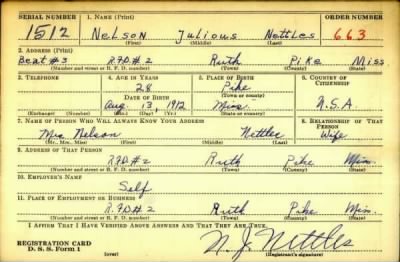 SERIAL NUMBER 1. NAME (Print) ORDER NUMBER
1512 Nelson Julious Nettles 663
(First) (Middle) (Last)
2. ADDRESS (Print)
Beat #3 R.F.D. #2 Ruth Pike Miss
(Number and street or R. F. D. number) (Town) (County) (State)
3. TELEPHONE 4. AGE IN YEARS 5. PLACE OF BIRTH 6. COUNTRY OF CITIZENSHIP
28 Pike
DATE OF BIRTH (Town or county)
Aug. 13, 1912 Miss. U.S.A.
(Exchange) (Number) (Mo.) (Day) (Yr.) (State or country)
7. NAME OF PERSON WHO WILL ALWAYS KNOW YOUR ADDRESS 8. RELATIONSHIP OF THAT PERSON
Mrs. Nelson Nettles Wife
(Mr., Mrs., Miss) (First) (Middle) (Last)
9. ADDRESS OF THAT PERSON
R.F.D. #2 Ruth Pike Miss.
(Number and street or R. F. D. number) (Town) (County) (State)
10. EMPLOYER'S NAME
Self
11. PLACE OF EMPLOYMENT OR BUSINESS
R.F.D. #2 Ruth Pike Miss.
(Number and street or R. F. D. number) (Town) (County) (State)
I AFFIRM THAT I HAVE VERIFIED ABOVE ANSWERS AND THAT THEY ARE TRUE.
REGISTRATION CARD
D. S. S. Form 1 (over) N. J. Nettles
(Registrant's signature)